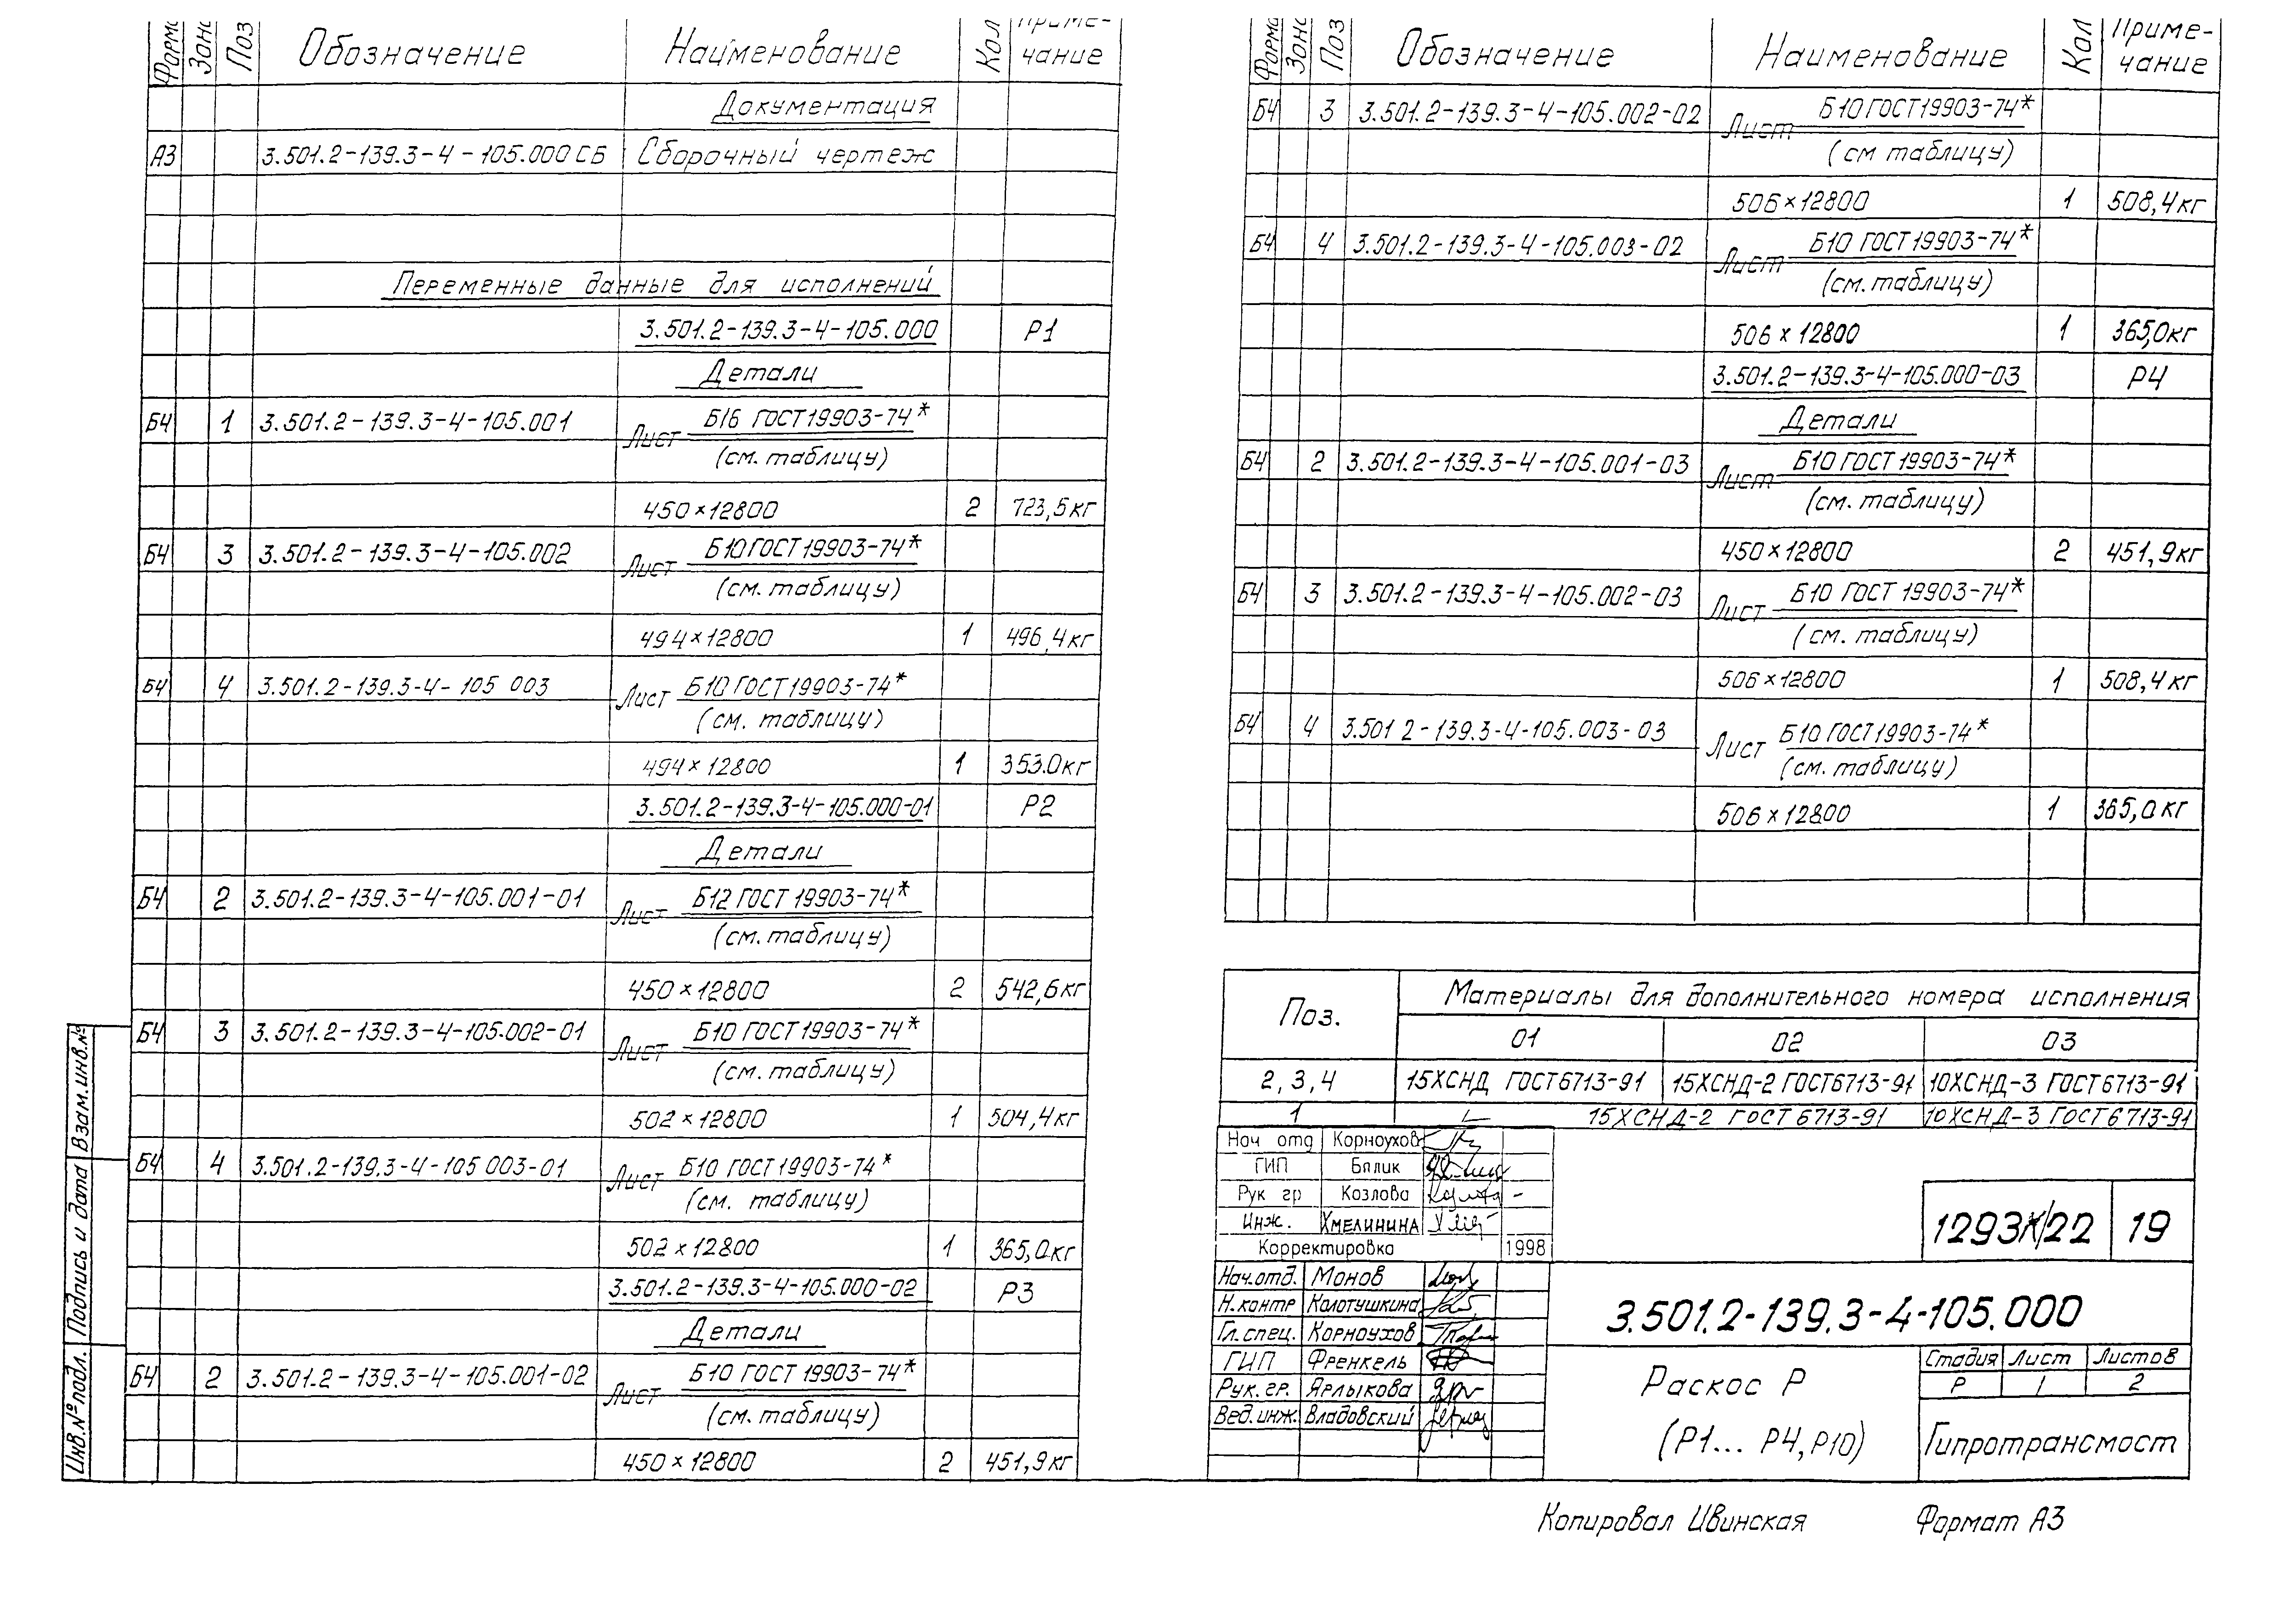 Форма Зона Поз Обозначение Наименование Кол Приме-
чание
Документация
А3 3.501.2-139.3-4-105.000 СБ Сборочный чертеж
Переменные данные для исполнений
3.501.2-139.3-4-105.000 Р1
Детали
Б4 1 3.501.2-139.3-4-105.001 Лист Б16 ГОСТ 19903-74*
(см. таблицу)
450×12800 2 723,5кг
Б4 3 3.501.2-139.3-4-105.002 Лист Б10 ГОСТ 19903-74*
(см. таблицу)
494×12800 1 496,4кг
Б4 4 3.501.2-139.3-4-105 003 Лист Б10 ГОСТ 19903-74*
(см. таблицу)
494×12800 1 353.0кг
3.501.2-139.3-4-105.000-01 Р2
Детали
Б4 2 3.501.2-139.3-4-105.001-01 Лист Б12 ГОСТ 19903-74*
(см. таблицу)
450×12800 2 542,6кг
Б4 3 3.501.2-139.3-4-105.002-01 Лист Б10 ГОСТ 19903-74*
(см. таблицу)
502×12800 1 504,4кг
Б4 4 3.501.2-139.3-4-105 003-01 Лист Б10 ГОСТ 19903-74*
(см. таблицу)
502×12800 1 365,0кг
3.501.2-139.3-4-105.000-02 Р3
Детали
Б4 2 3.501.2-139.3-4-105.001-02 Лист Б10 ГОСТ 19903-74*
(см. таблицу)
450×12800 2 451,9кг
Инв.№подл. Подпись и дата Взам.инв.№
Форма Зона Поз Обозначение Наименование Кол Приме-
чание
Б4 3 3.501.2-139.3-4-105.002-02 Лист Б10 ГОСТ 19903-74*
(см таблицу)
506×12800 1 508,4кг
Б4 4 3.501.2-139.3-4-105.003-02 Лист Б10 ГОСТ 19903-74*
(см. таблицу)
506×12800 1 365,0кг
3.501.2-139.3-4-105.000-03 Р4
Детали
Б4 2 3.501.2-139.3-4-105.001-03 Лист Б10 ГОСТ 19903-74*
(см. таблицу)
450×12800 2 451,9кг
Б4 3 3.501.2-139.3-4-105.002-03 Лист Б10 ГОСТ 19903-74*
(см. таблицу)
506×12800 1 508,4кг
Б4 4 3.501 2-139.3-4-105.003-03 Лист Б10 ГОСТ 19903-74*
(см. таблицу)
506×12800 1 365,0кг
Поз. Материалы для дополнительного номера исполнения
01 02 03
2, 3, 4 15ХСНД ГОСТ6713-91 15ХСНД-2 ГОСТ6713-91 10ХСНД-3 ГОСТ6713-91
1 — 15ХСНД-2 ГОСТ 6713-91 10ХСНД-3 ГОСТ6713-91
Нач отд Корноухов
ГИП Бялик
Рук гр Козлова
Инж. Хмелинина
Корректировка 1998
1293К/22 19
Нач.отд. Монов
Н.контр Колотушкина
Гл.спец. Корноухов
ГИП Френкель
Рук.гр. Ярлыкова
Вед.инж. Владовский
3.501.2-139.3-4-105.000
Раскос Р
(Р1... Р4, Р10)
Стадия Лист Листов
Р 1 2
Гипротрансмост
Копировал Ивинская Формат А3